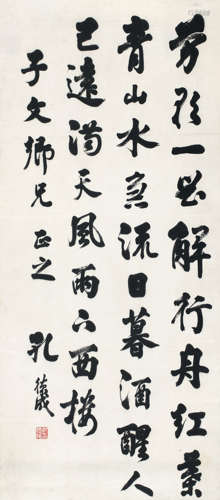 勞歌一曲解行舟紅葉
青山水急流日暮酒醒人
已遠滿天風雨下西樓
子文鄉兄正之
孔德成